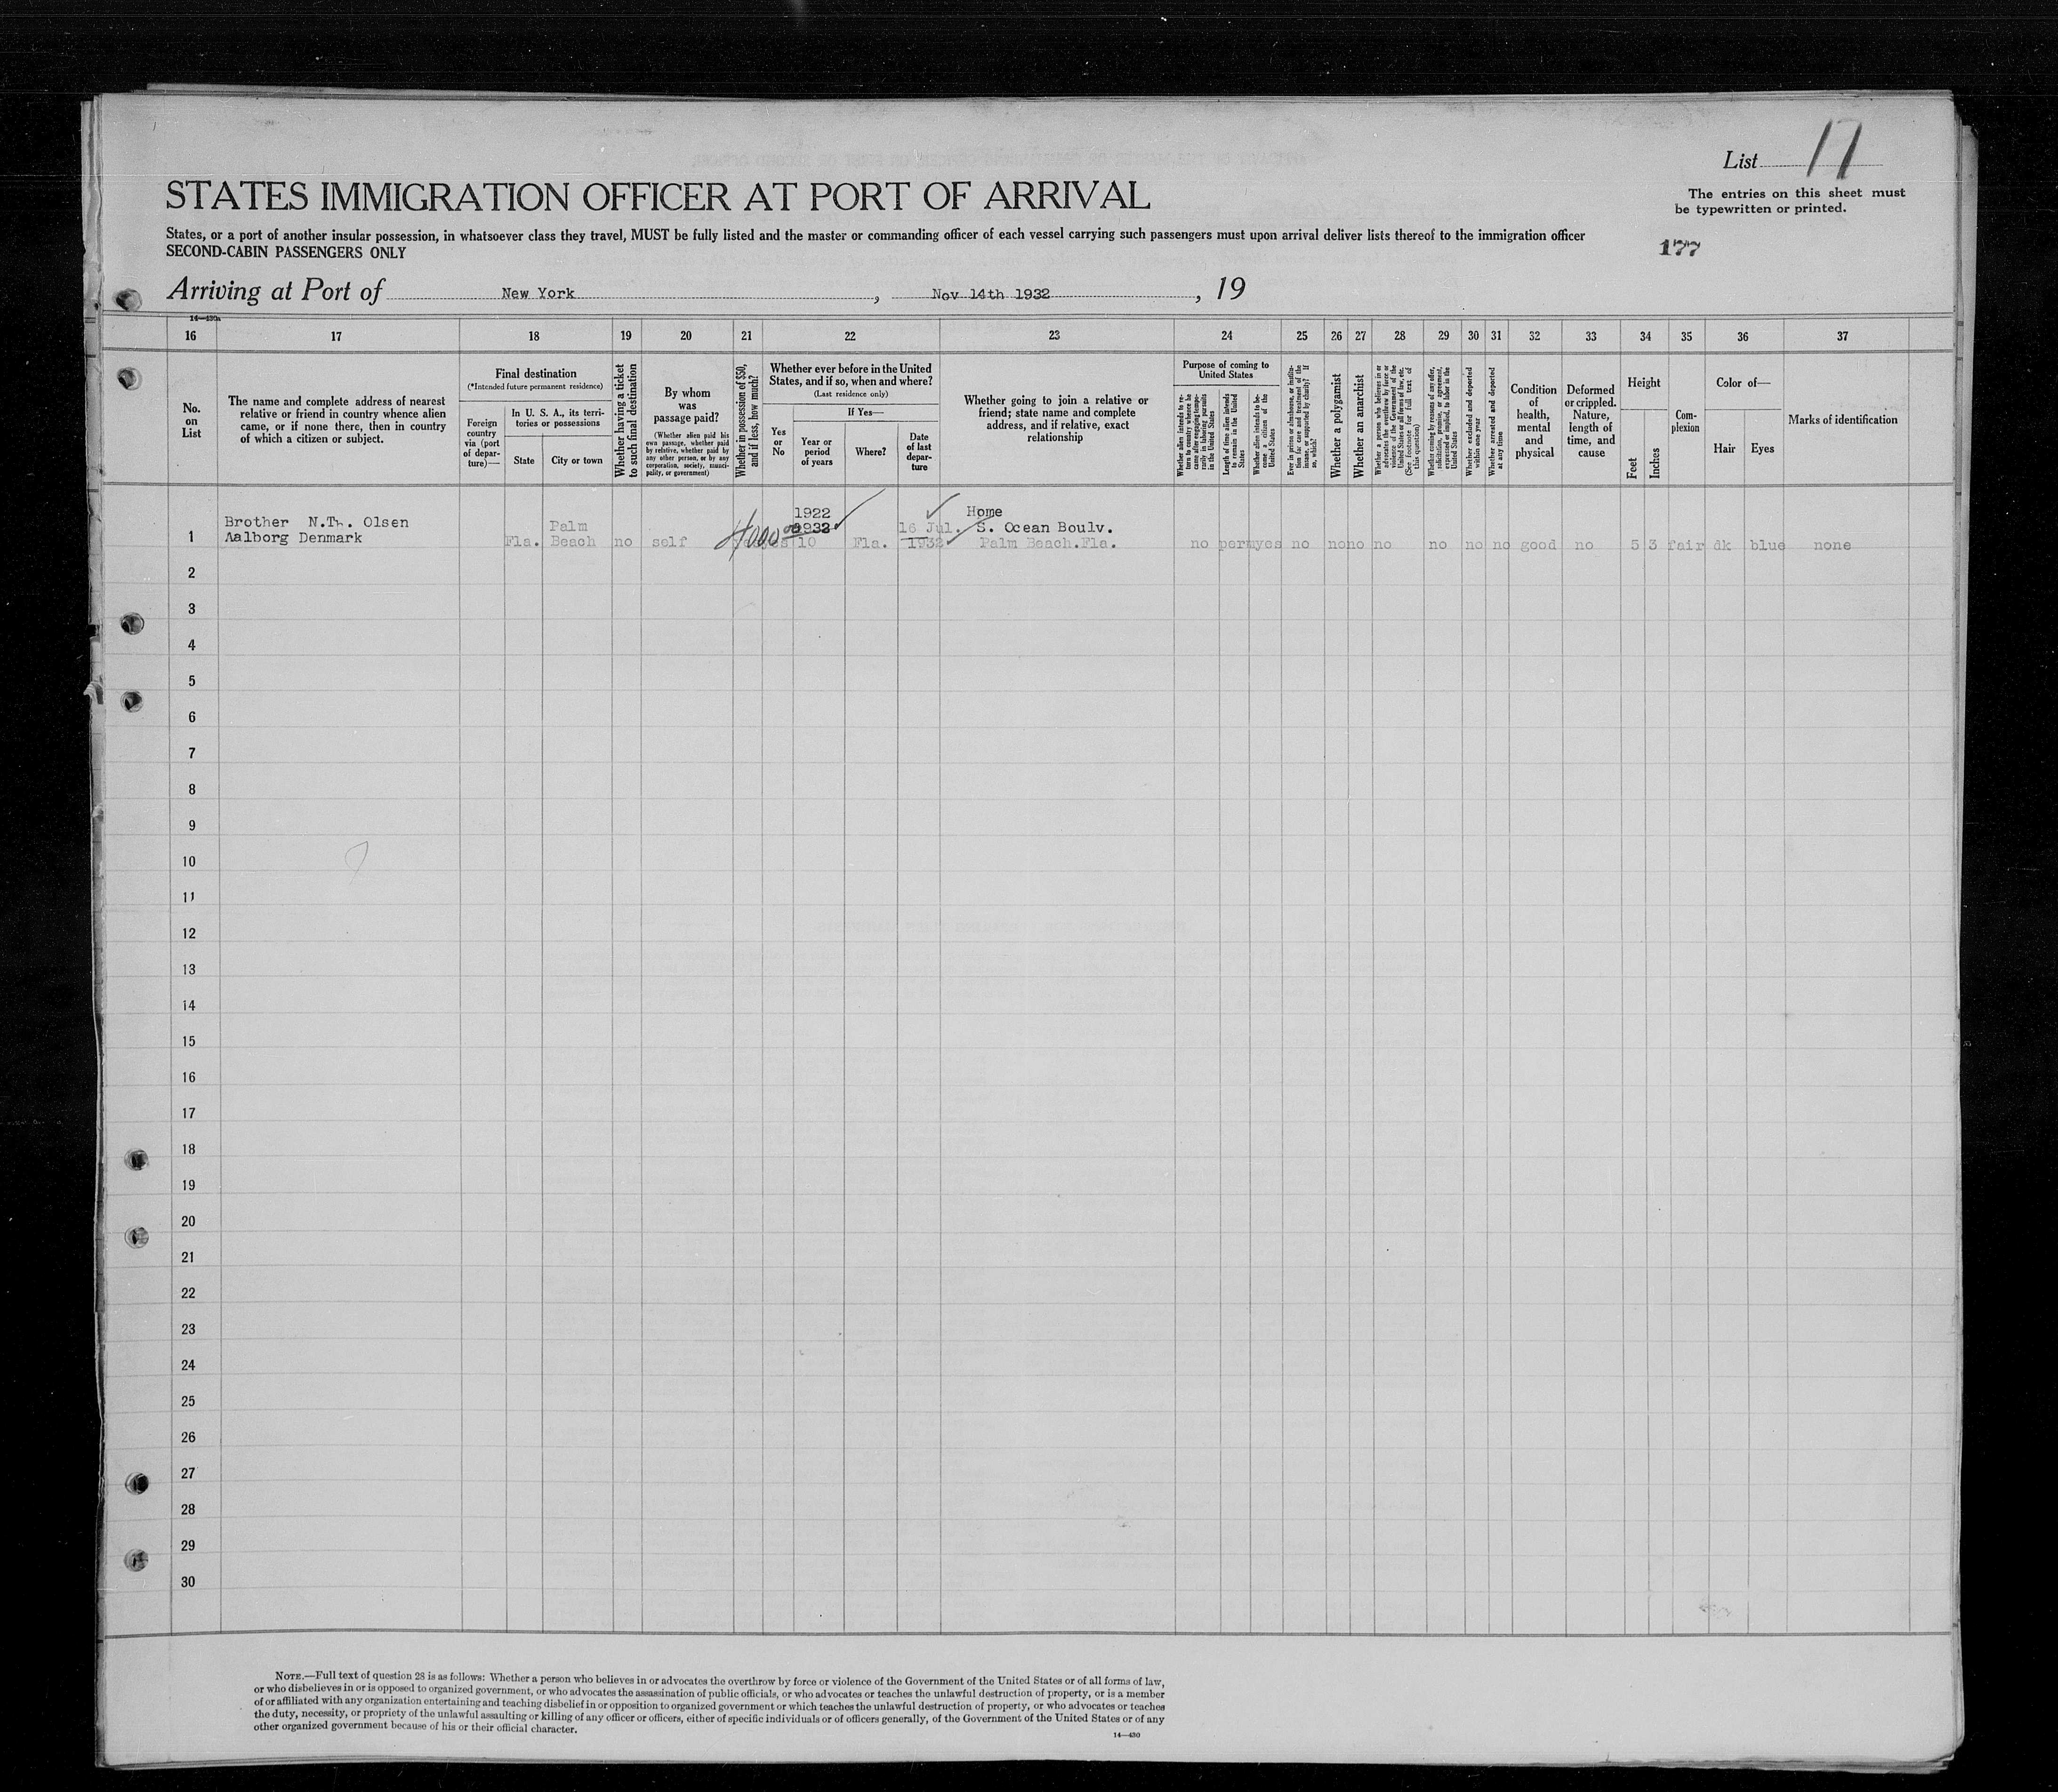 List 17
STATES IMMIGRATION OFFICER AT PORT OF ARRIVAL
The entries on this sheet must
be typewritten or printed.
States, or a port of another insular possession, in whatsoever class they travel, MUST be fully listed and the master or commanding officer of each vessel carrying such passengers must upon arrival deliver lists thereof to the immigration officer
SECOND-CABIN PASSENGERS ONLY
177
Arriving at Port of New York, Nov 14th 1932, 19
14—430a
16 17 18 19 20 21 22 23 24 25 26 27 28 29 30 31 32 33 34 35 36 37
No.
on
List
The name and complete address of nearest
relative or friend in country whence alien
came, or if none there, then in country
of which a citizen or subject.
Final destination
(*Intended future permanent residence)
Foreign
country
via (port
of depar-
ture)—
In U. S. A., its terri-
tories or possessions
State
City or town
Whether having a ticket
to such final destination
By whom
was
passage paid?
(Whether alien paid his
own passage, whether paid
by relative, whether paid by
any other person, or by any
corporation, society, munici-
pality, or government)
Whether in possession of $50,
and if less, how much?
Whether ever before in the United
States, and if so, when and where?
(Last residence only)
Yes
or
No
If Yes—
Year or
period
of years
Where?
Date
of last
depar-
ture
Whether going to join a relative or
friend; state name and complete
address, and if relative, exact
relationship
Purpose of coming to
United States
Whether alien intends to re-
turn to country whence he
came after engaging tempo-
rarily in laboring pursuits
in the United States
Length of time alien intends
to remain in the United
States
Whether alien intends to be-
come a citizen of the
United States
Ever in prison or almshouse, or institu-
tion for care and treatment of the
insane, or supported by charity? If
so, which?
Whether a polygamist
Whether an anarchist
Whether a person who believes in or
advocates the overthrow by force or
violence of the Government of the
United States or all forms of law, etc.
(See footnote for full text of
this question)
Whether coming by reasons of any offer,
solicitation, promise, or agreement,
expressed or implied, to labor in the
United States
Whether excluded and deported
within one year
Whether arrested and deported
at any time
Condition
of
health,
mental
and
physical
Deformed
or crippled.
Nature,
length of
time, and
cause
Height
Feet
Inches
Com-
plexion
Color of—
Hair
Eyes
Marks of identification
1922
Home
Brother N.Th. Olsen Palm 1932 16 Jul. S. Ocean Boulv.
1 Aalborg Denmark Fla. Beach no self 4000 00 yes 10 Fla. 1932 Palm Beach.Fla. no perm yes no no no no no no no good no 5 3 fair dk blue none
2
3
4
5
6
7
8
9
10
11
12
13
14
15
16
17
18
19
20
21
22
23
24
25
26
27
28
29
30
NOTE.—Full text of question 28 is as follows: Whether a person who believes in or advocates the overthrow by force or violence of the Government of the United States or of all forms of law,
or who disbelieves in or is opposed to organized government, or who advocates the assassination of public officials, or who advocates or teaches the unlawful destruction of property, or is a member
of or affiliated with any organization entertaining and teaching disbelief in or opposition to organized government or which teaches the unlawful destruction of property, or who advocates or teaches
the duty, necessity, or propriety of the unlawful assaulting or killing of any officer or officers, either of specific individuals or of officers generally, of the Government of the United States or of any
other organized government because of his or their official character.
14—430